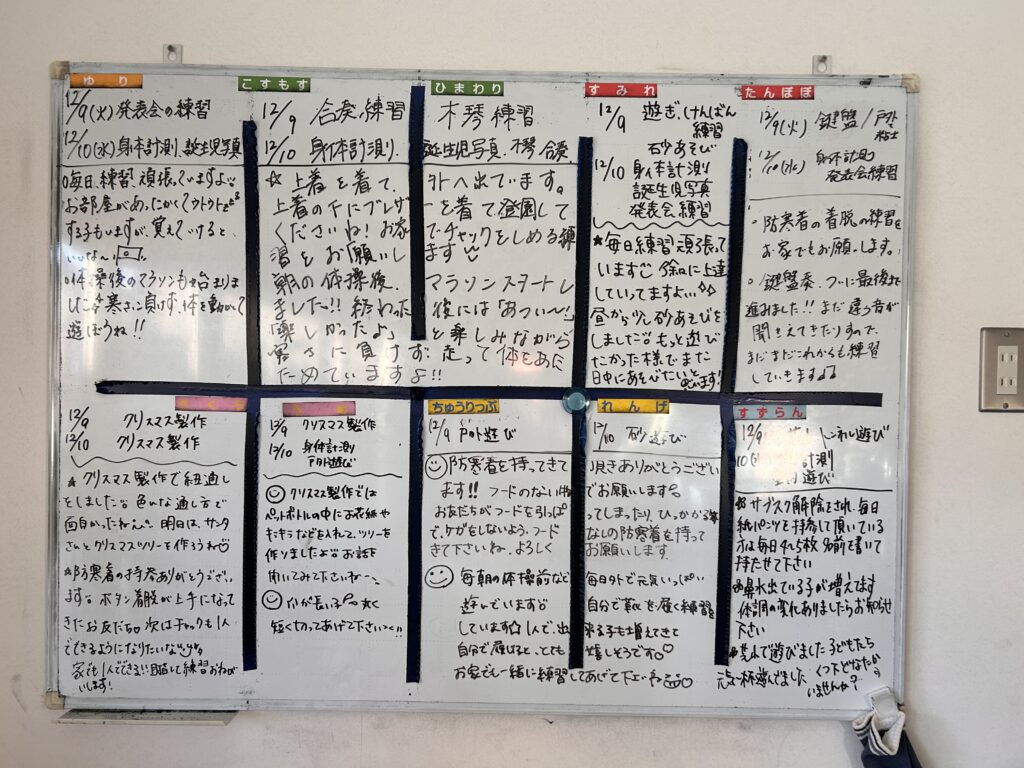 ゆり
12/9(火)発表会の練習
12/10(水)身体計測、誕生児写真
毎日、練習、頑張っていますよ
お部屋があったかくてウトウトz
する子もいますが、覚えていけると
いいな〜
体操後のマラソンも始まりま
した 寒さに負けず、体を動かして
遊ぼうね!!
こすもす
ひまわり
12/9 合奏、練習 木琴練習
12/10 身体計測、誕生児写真、木琴合奏、
☆上着を着て、外へ出ています。
上着の下にブレザーを着て、登園して
くださいね!お家でチャックをしめる練
習をお願いします
の体操後、マラソンスタートし
ました!! 終わった後には「あつい〜!
楽しかったよ」と楽しみながら
寒さに負けず、走って体をあた
ためていますよ!!
すみれ
12/9 遊ぎ、けんばん
練習
砂あそび
12/10 身体計測
誕生児写真
発表会練習
★毎日練習頑張って
います 徐々に上達
していってますよ…
昼から少し砂あそびを
しました もっと遊び
たかった様でまた
日中にあそびたいと思います!
たんぽぽ
12/9(火) 鍵盤/戸外
粘土
12/10(水) 身体計測
発表会練習
。防寒着の着脱の練習を
お家でもお願いします。
。鍵盤奏、ついに最後まで
進みました!! まだ違う音が
聞こえてきたりすので、
まだまだこれからも練習
していきます♪♪
12/9 クリスマス製作
12/10 クリスマス製作
★クリスマス製作で紐通し
をしました 色んな通し方で
面白かったね 明日は、サンタ
さんとクリスマスツリーを作ろうね♡
★防寒着の持参ありがとうござい
ます。ボタン着脱が上手になって
きたお友だち 次はチャックも1人
でできるようになりたいな
家でも1人でできる!!目指して練習おねが
いします!
12/9 クリスマス製作
12/10 身体計測
戸外遊び
クリスマス製作では
ペットボトルの中にお花紙や
キラキラなどを入れて、ツリーを
作りましたよ お話を
聞いてみて下さいね〜
爪が長い子
短く切ってあげて下さいっ!!
ちゅうりっぷ
れんげ
12/9 戸外遊び
12/10 砂遊び
防寒着を持ってきて頂きありがとうござい
ます!! フードのない物でお願いします
お友だちがフードを引っぱってしまったり、ひっかかる
で、ケガをしないよう、フードなしの防寒着を持って
きて下さいね、よろしくお願いします。
毎朝の体操前など毎日外で元気いっぱい
遊んでいます
自分で靴を履く練習
しています 1人で、出来る子も増えてきて
自分で履けると、とても嬉しそうです♡
お家でも一緒に練習してあげて下さいね
すずらん
12/9
計測
遊び
サブスク解除をされ、毎日
紙パンツを持参して頂いている
方は毎日4~5枚、名前を書いて
持たせて下さい
鼻水出ている子が増えてます
体調の変化ありましたらお知らせ
下さい
んで遊びました 子どもたち
元気一杯遊んでました
くつ下どなたか
いませんか?